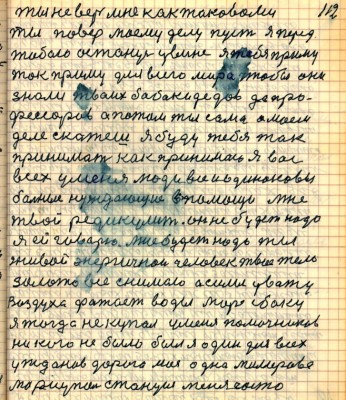 ты не верь мне как таковому 112
ты поверь моему делу пусть я перед
тобою останусь у мине я тебя приму
ток приму для всего мира чтобы они
знали твоих бабак и дедов да про-
фессоров а потом ты сама о моем
деле скажеш я буду тебя так
принимат как принимаю я вас
всех у меня люди все и одинаковы
болные нуждающие в помощи мне
твой редикулит он не будет надо
я ей говарю мне будет надо ты
живой энергичной человек твое тело
золото все снимало а силы хвату
воздуха фатает воды море
я тогда не купал у меня помочников
никого не было был я один для всех
дорого моя одна
станция меня